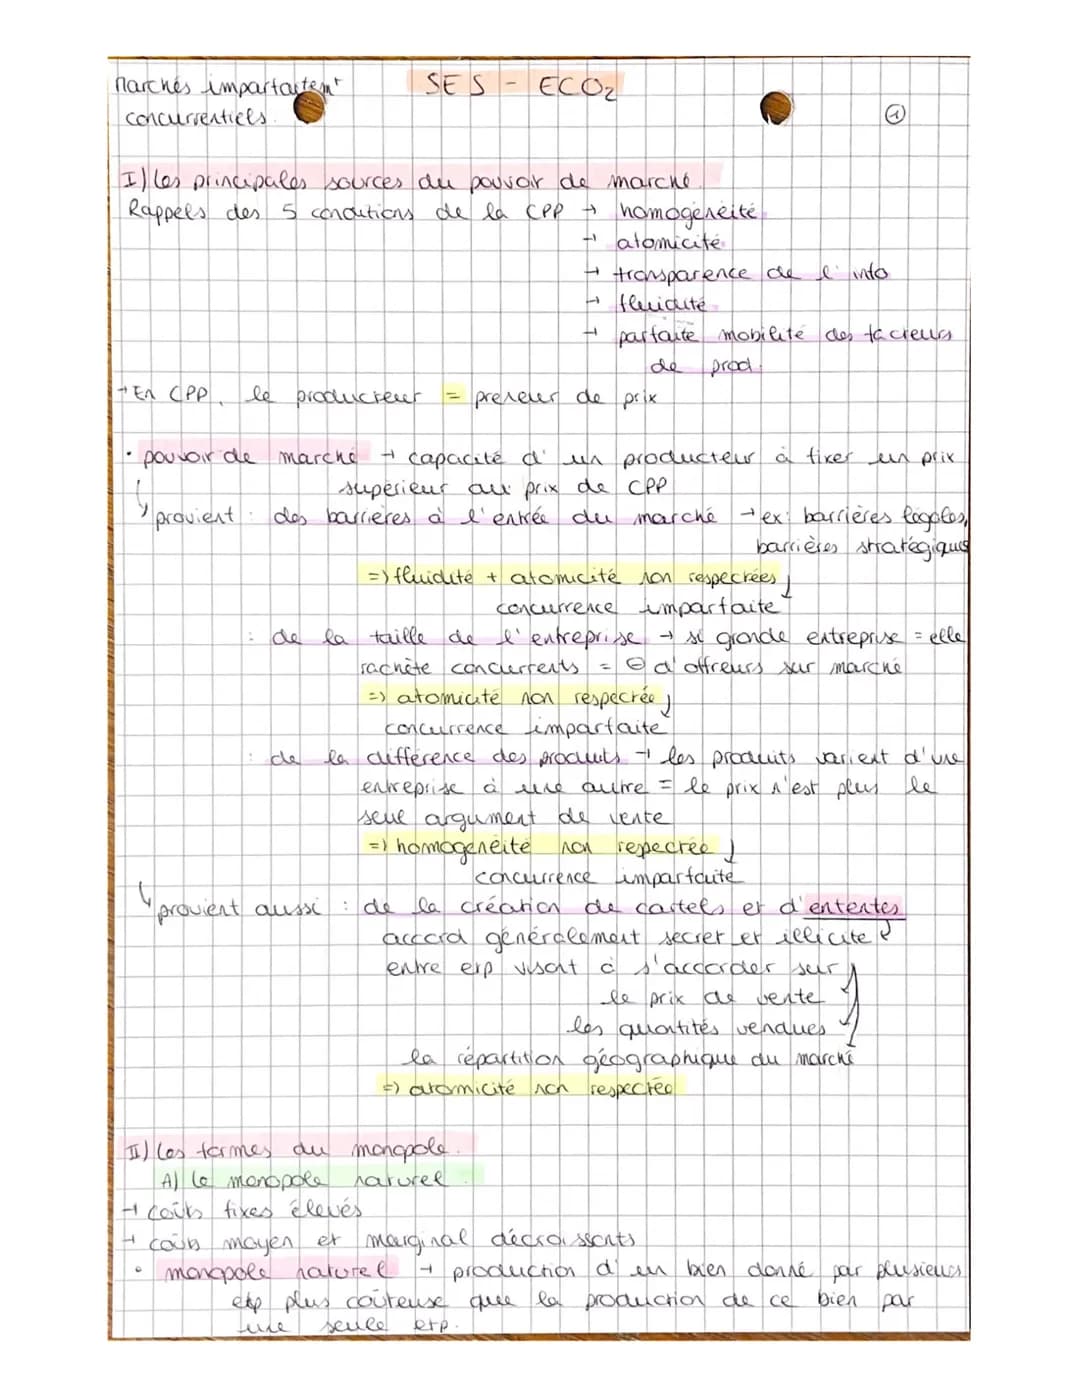 Marchés imparfaitemt
SES - ECO2
concurrentiels.
1
I) Les principales sources du pouvoir de marché.
Rappels des 5 conditions de la CPP → homogénéité
→ atomicité
→ transparence de l'info
→ fluidité
→ parfaite mobilité des facteurs
de prod.
→ En CPP, le producteur = preneur de prix
• pouvoir de marché → capacité d'un producteur à fixer un prix
supérieur au prix de CPP
provient : des barrières à l'entrée du marché → ex: barrières légales,
barrières stratégiques
=> fluidité + atomicité non respectées
concurrence imparfaite
: de la taille de l'entreprise → si grande entreprise = elle
rachète concurrents = ⊖ d'offreurs sur marché
=> atomicité non respectée
concurrence imparfaite
: de la différence des produits → les produits varient d'une
entreprise à une autre = le prix n'est plus le
seul argument de vente
=> homogénéité non repectrée
concurrence imparfaite
provient aussi : de la création de cartels et d'ententes
accord généralement secret et illicite
entre erp visant à s'accorder sur
le prix de vente
les quantités vendues
la répartition géographique du marché
=> atomicité non respectée
II) Les formes du monopole.
A) Le monopole naturel.
→ coûts fixes élevés
→ coûts moyen et marginal décroissants
• monopole naturel → production d'un bien donné par plusieurs
etp plus coûteuse que la production de ce bien par
une seule etp.